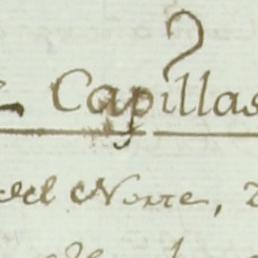 Capillas
del Norte,